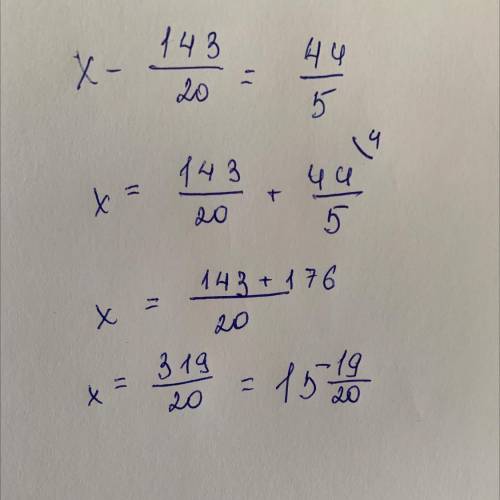 x - 143/20 = 44/5
x = 143/20 + 44/5 \4
x = 143 + 176/20
x = 319/20 = 15 19/20